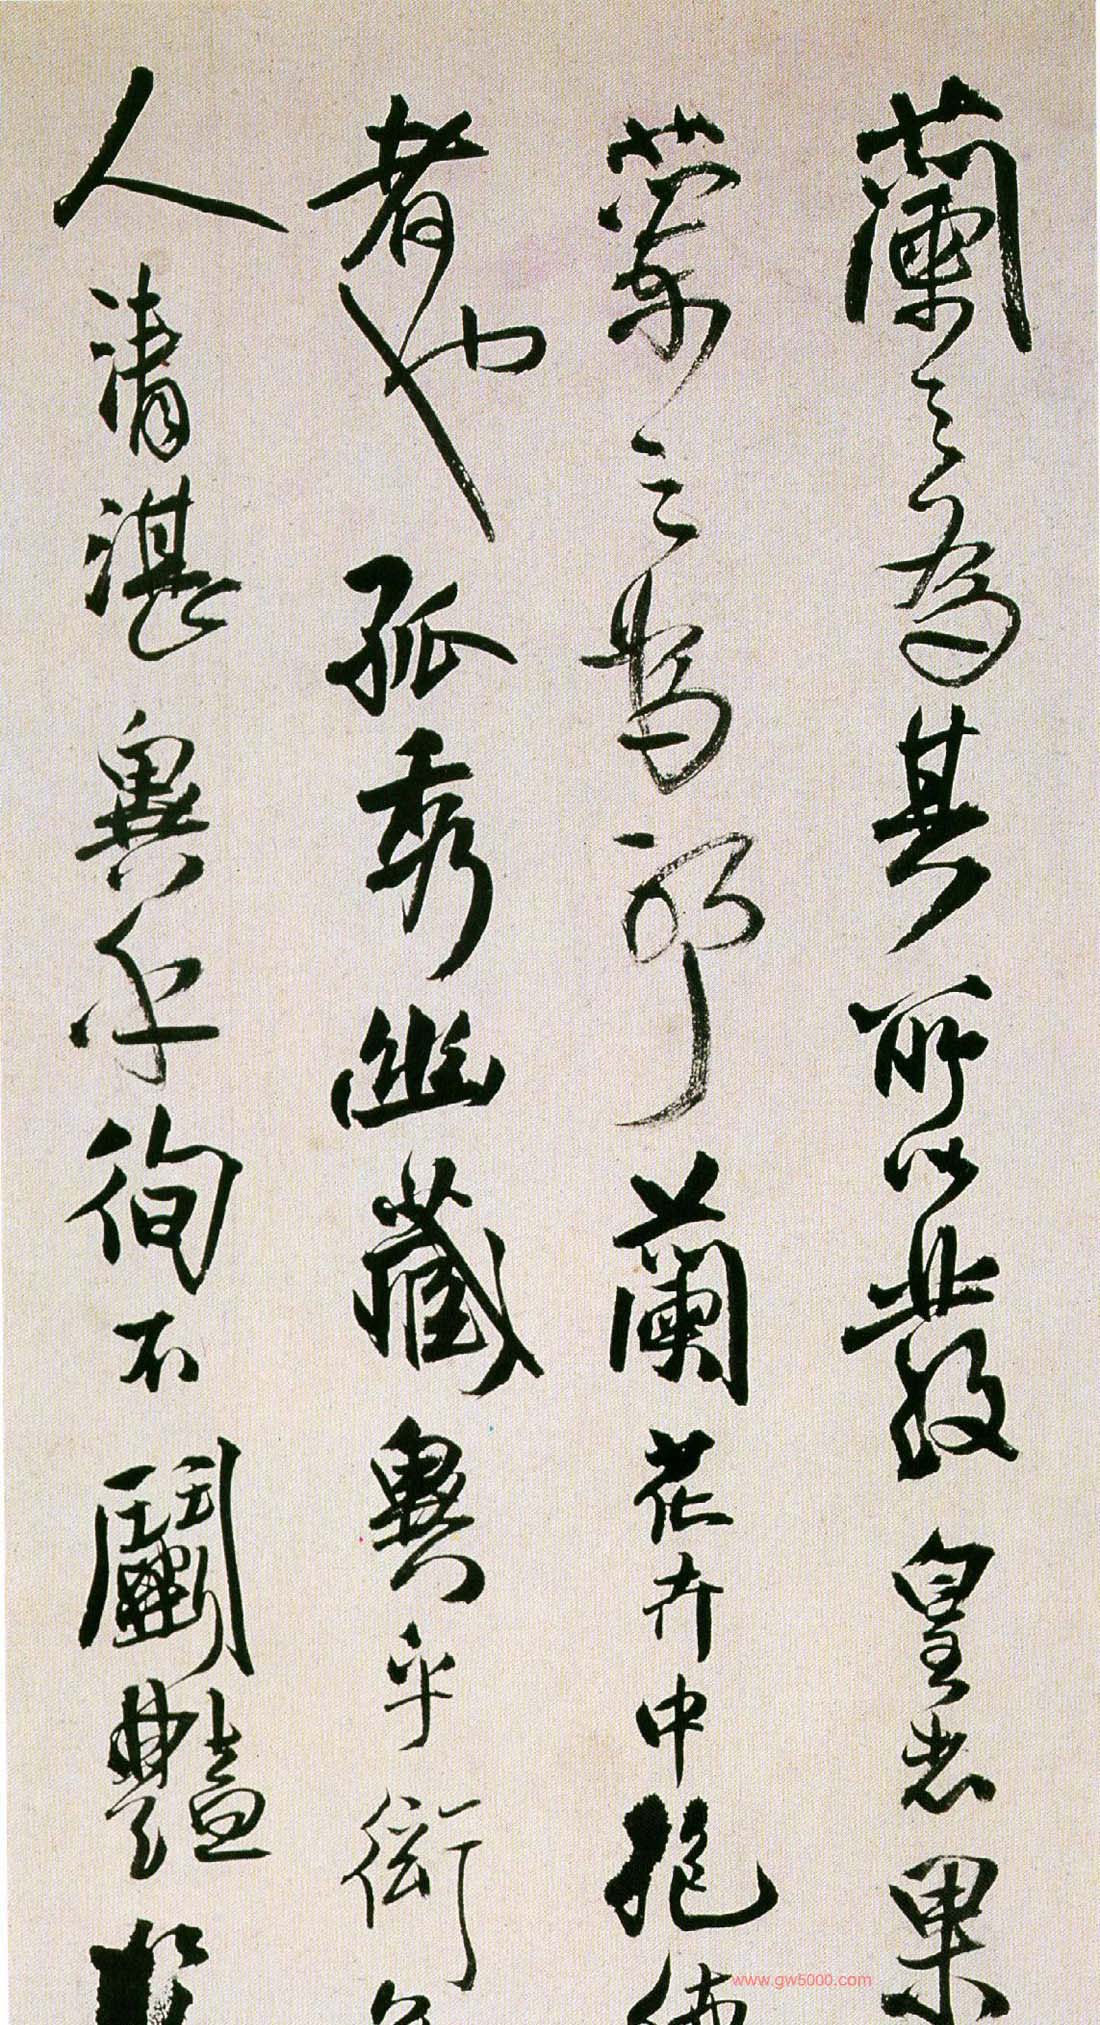 蘭之為其所以發皇者果
之耶蘭花卉中
者也孤秀幽藏異乎衒
人清湛異乎徇不鬭豔
www.gw5000.com